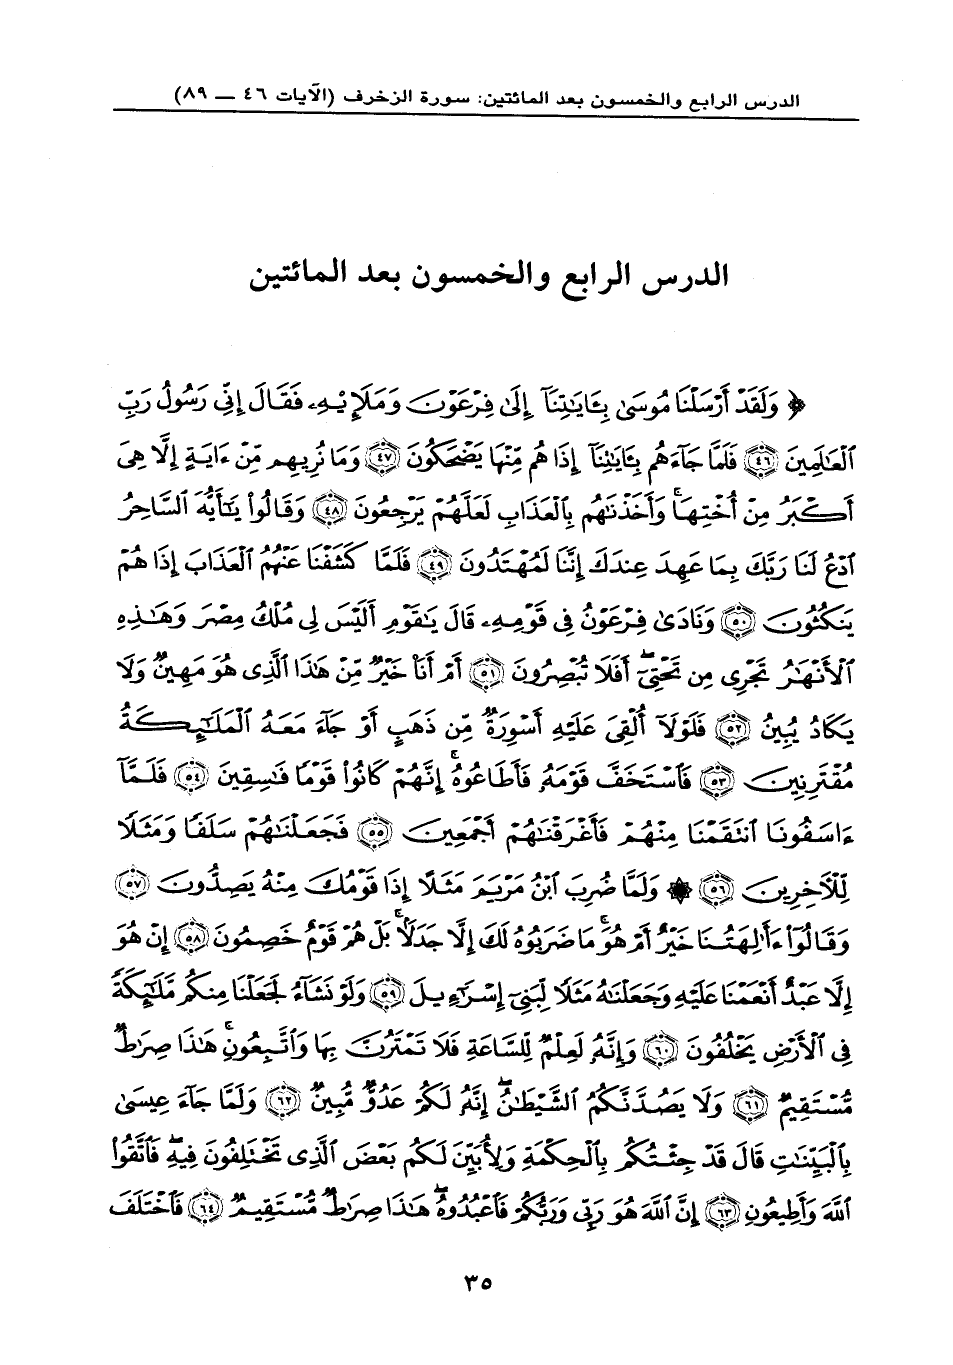 الدرس الرابع والخمسون بعد المائتين: سورة الزخرف (الآيات ٤٦ — ٨٩)
الدرس الرابع والخمسون بعد المائتين
﴿ وَلَقَدْ أَرْسَلْنَا مُوسَىٰ بِـَٔايَـٰتِنَآ إِلَىٰ فِرْعَوْنَ وَمَلَإِيْهِۦ فَقَالَ إِنِّى رَسُولُ رَبِّ
ٱلْعَـٰلَمِينَ ﴿٤٦﴾ فَلَمَّا جَآءَهُم بِـَٔايَـٰتِنَآ إِذَا هُم مِّنْهَا يَضْحَكُونَ ﴿٤٧﴾ وَمَا نُرِيهِم مِّنْ ءَايَةٍ إِلَّا هِىَ
أَكْبَرُ مِنْ أُخْتِهَا ۖ وَأَخَذْنَـٰهُم بِٱلْعَذَابِ لَعَلَّهُمْ يَرْجِعُونَ ﴿٤٨﴾ وَقَالُوا۟ يَـٰٓأَيُّهَ ٱلسَّاحِرُ
ٱدْعُ لَنَا رَبَّكَ بِمَا عَهِدَ عِندَكَ إِنَّنَا لَمُهْتَدُونَ ﴿٤٩﴾ فَلَمَّا كَشَفْنَا عَنْهُمُ ٱلْعَذَابَ إِذَا هُمْ
يَنكُثُونَ ﴿٥٠﴾ وَنَادَىٰ فِرْعَوْنُ فِى قَوْمِهِۦ قَالَ يَـٰقَوْمِ أَلَيْسَ لِى مُلْكُ مِصْرَ وَهَـٰذِهِ
ٱلْأَنْهَـٰرُ تَجْرِى مِن تَحْتِىٓ ۖ أَفَلَا تُبْصِرُونَ ﴿٥١﴾ أَمْ أَنَا۠ خَيْرٌ مِّنْ هَـٰذَا ٱلَّذِى هُوَ مَهِينٌ وَلَا
يَكَادُ يُبِينُ ﴿٥٢﴾ فَلَوْلَآ أُلْقِىَ عَلَيْهِ أَسْوِرَةٌ مِّن ذَهَبٍ أَوْ جَآءَ مَعَهُ ٱلْمَلَـٰٓئِكَةُ
مُقْتَرِنِينَ ﴿٥٣﴾ فَٱسْتَخَفَّ قَوْمَهُۥ فَأَطَاعُوهُ ۚ إِنَّهُمْ كَانُوا۟ قَوْمًا فَـٰسِقِينَ ﴿٥٤﴾ فَلَمَّآ
ءَاسَفُونَا ٱنتَقَمْنَا مِنْهُمْ فَأَغْرَقْنَـٰهُمْ أَجْمَعِينَ ﴿٥٥﴾ فَجَعَلْنَـٰهُمْ سَلَفًا وَمَثَلًا
لِّلْـَٔاخِرِينَ ﴿٥٦﴾ ۞ وَلَمَّا ضُرِبَ ٱبْنُ مَرْيَمَ مَثَلًا إِذَا قَوْمُكَ مِنْهُ يَصِدُّونَ ﴿٥٧﴾
وَقَالُوٓا۟ ءَأَـٰلِهَتُنَا خَيْرٌ أَمْ هُوَ ۚ مَا ضَرَبُوهُ لَكَ إِلَّا جَدَلًۢا ۚ بَلْ هُمْ قَوْمٌ خَصِمُونَ ﴿٥٨﴾ إِنْ هُوَ
إِلَّا عَبْدٌ أَنْعَمْنَا عَلَيْهِ وَجَعَلْنَـٰهُ مَثَلًا لِّبَنِىٓ إِسْرَٰٓءِيلَ ﴿٥٩﴾ وَلَوْ نَشَآءُ لَجَعَلْنَا مِنكُم مَّلَـٰٓئِكَةً
فِى ٱلْأَرْضِ يَخْلُفُونَ ﴿٦٠﴾ وَإِنَّهُۥ لَعِلْمٌ لِّلسَّاعَةِ فَلَا تَمْتَرُنَّ بِهَا وَٱتَّبِعُونِ ۚ هَـٰذَا صِرَٰطٌ
مُّسْتَقِيمٌ ﴿٦١﴾ وَلَا يَصُدَّنَّكُمُ ٱلشَّيْطَـٰنُ ۖ إِنَّهُۥ لَكُمْ عَدُوٌّ مُّبِينٌ ﴿٦٢﴾ وَلَمَّا جَآءَ عِيسَىٰ
بِٱلْبَيِّنَـٰتِ قَالَ قَدْ جِئْتُكُم بِٱلْحِكْمَةِ وَلِأُبَيِّنَ لَكُم بَعْضَ ٱلَّذِى تَخْتَلِفُونَ فِيهِ ۖ فَٱتَّقُوا۟
ٱللَّهَ وَأَطِيعُونِ ﴿٦٣﴾ إِنَّ ٱللَّهَ هُوَ رَبِّى وَرَبُّكُمْ فَٱعْبُدُوهُ ۚ هَـٰذَا صِرَٰطٌ مُّسْتَقِيمٌ ﴿٦٤﴾ فَٱخْتَلَفَ
٣٥